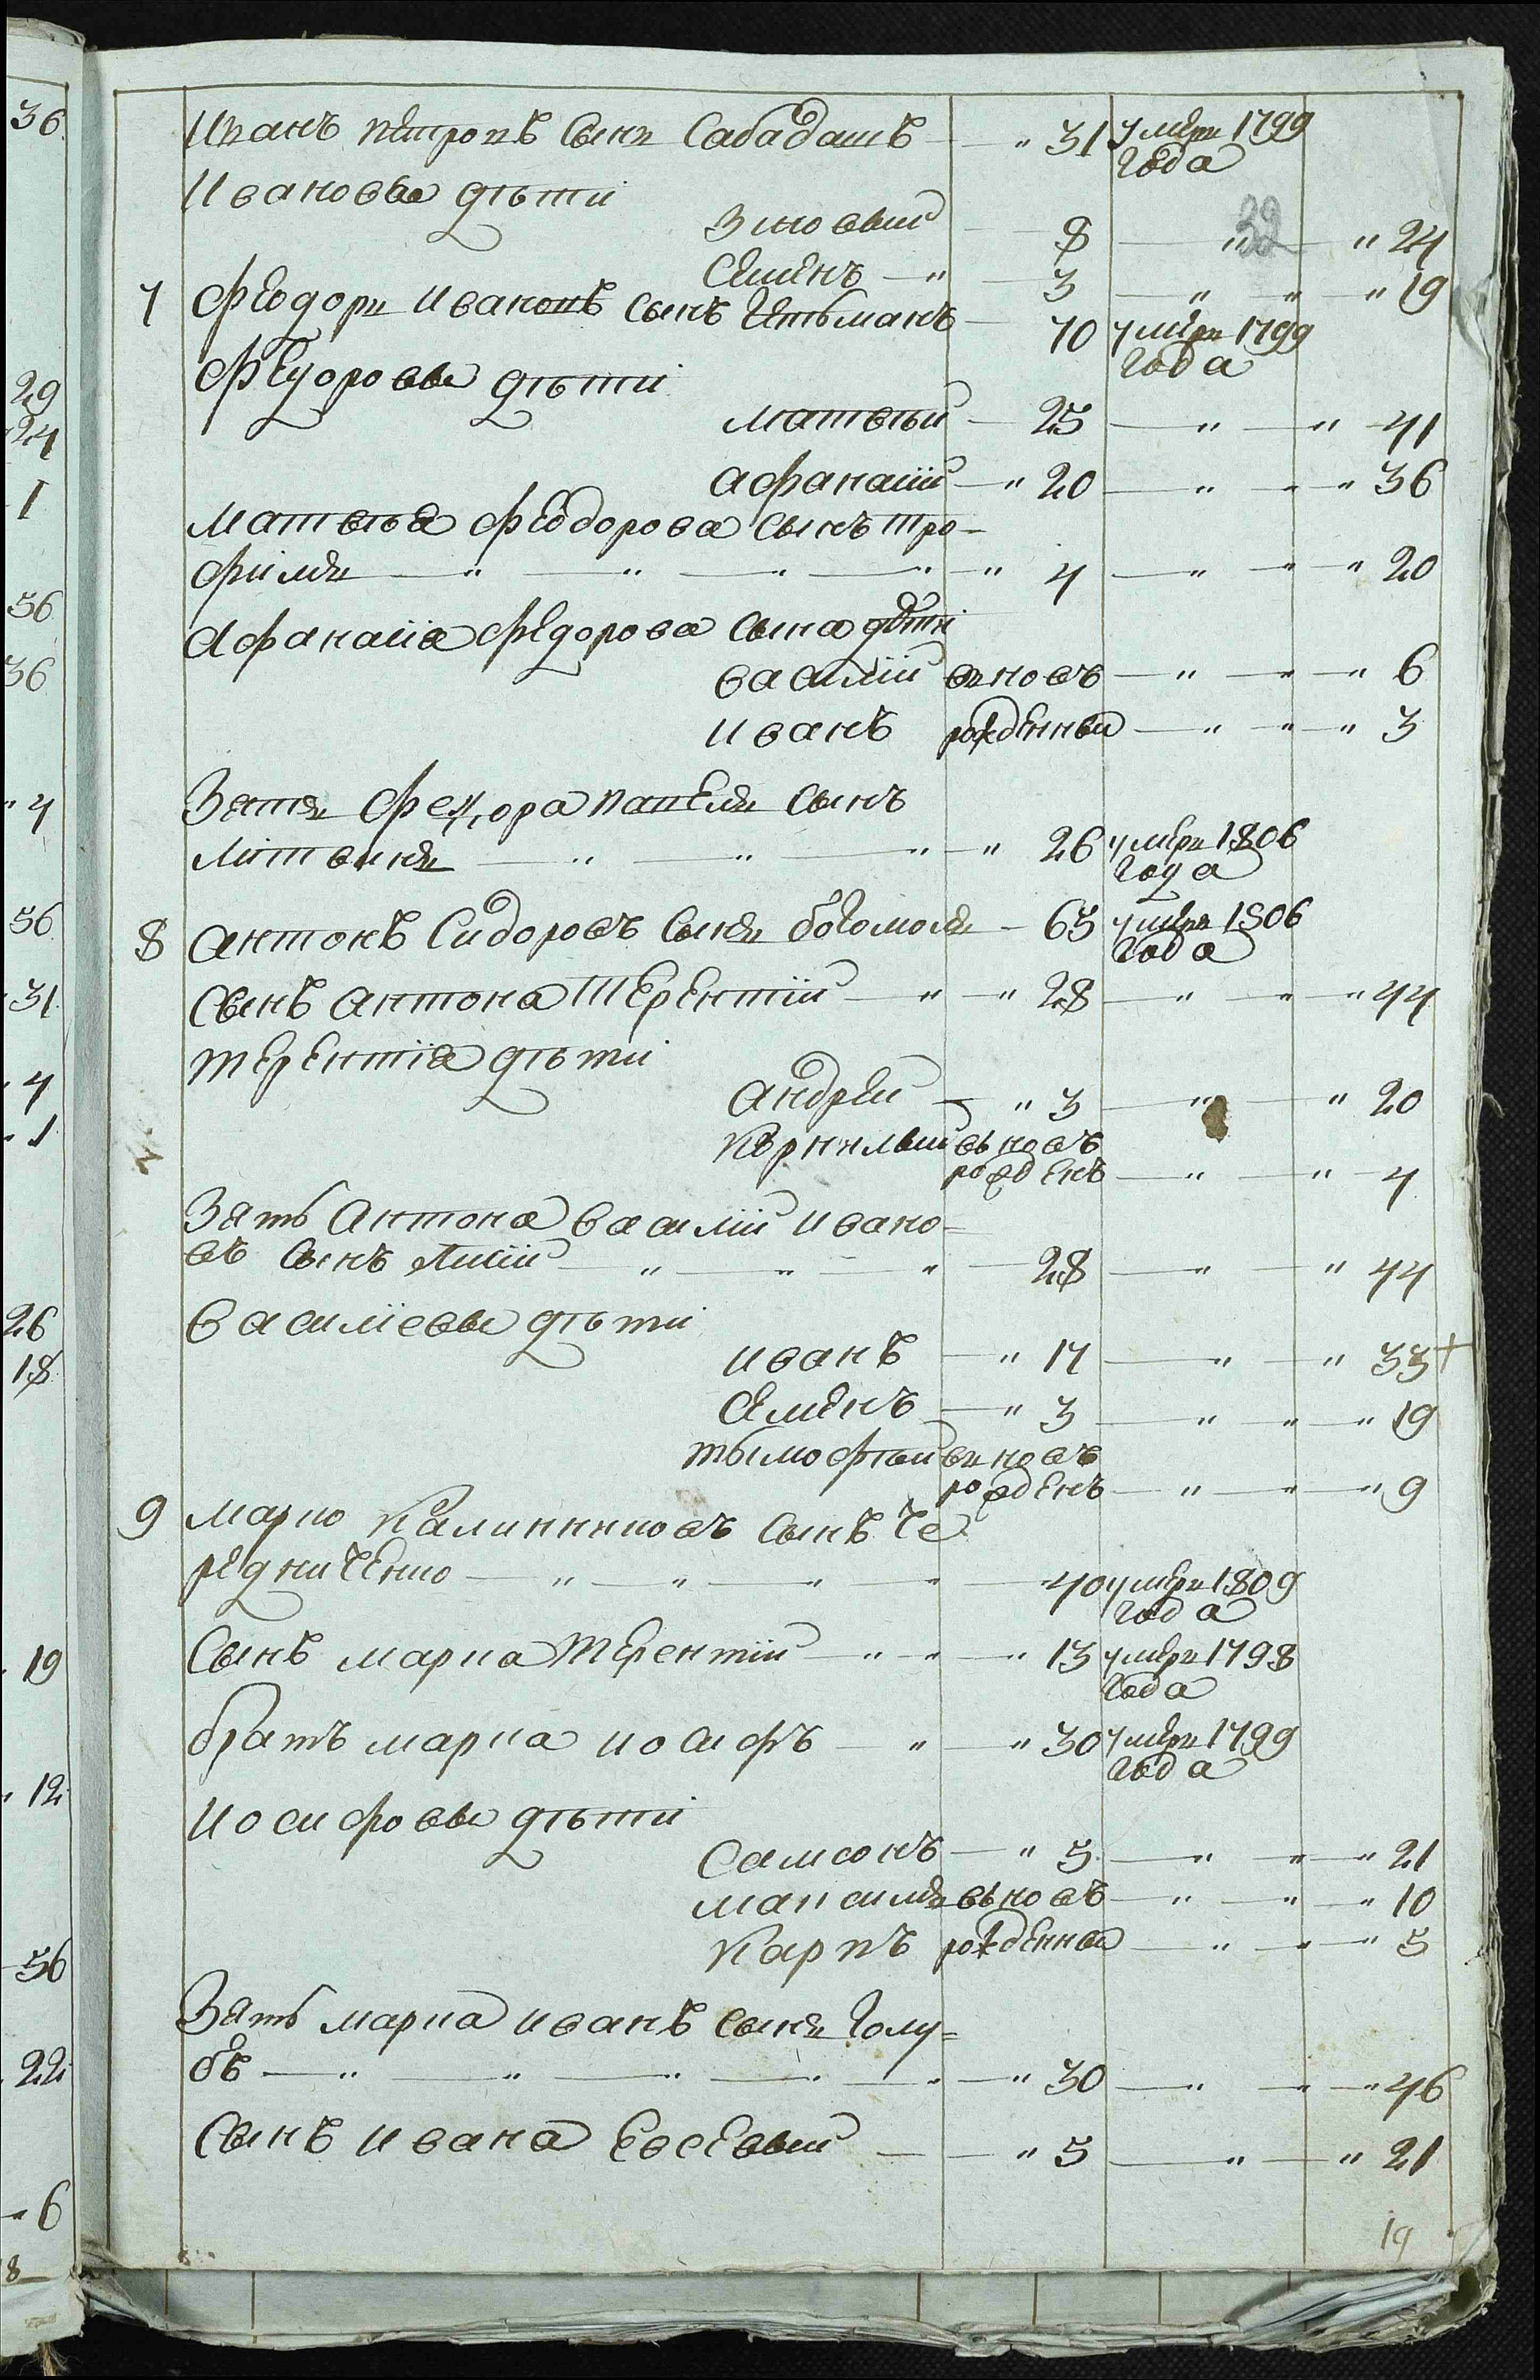 Иванъ петровъ Сынъ Сабадашъ — " 31 умеръ 1799
года
Ивановы дѣти
Зіновый — 8 — " — " 24
Семенъ — " — 3 — " " " 19
7 Феодоръ Ивановъ сынъ Гетьманъ — 70 умеръ 1799
года
Федоровы дѣти
матвѣй — 25 — " — " 41
афанасій — " 20 — " " " 36
Матвѣя Феодорова сынъ тро-
фимъ — " — " — " — " — " 4 — " — " 20
Афанасія Федорова сына дѣти
василій вновъ — " — " — " 6
иванъ рожденныи — " — " — " 3
Зятя Федора павелъ сынъ
литвинъ — " — " — " — " 26 умеръ 1806
года
8 антонъ Сидоровъ Сынъ богомолъ — 65 умеръ 1806
года
Сынъ антона Терентій — " — " 28 — " " " 44
терентія дѣти
андрей — " 3 — " — " 20
корнилый вновъ
рожденъ — " — " 4
Зять антона василій ивано=
въ сынъ лисій — " — " — " — 28 — " — " 44
василіевы дѣти
иванъ — " 17 — " — " 33+
Семенъ — " 3 — " — " 19
тымофѣй вновъ
рожденъ — " — " 9
9 марко Калинниковъ сынъ Че
редниченко — " — " — " — " — 40 умеръ 1809
года
Сынъ марка терентій — " " — " 13 умеръ 1798
года
братъ марка иосифъ — " — " 30 умеръ 1799
года
Иосифовы дѣти
Самсонъ — " 5 — " — " 21
максимъ вновъ — " — " 10
Карпъ рожденныи — " — " 5
Зять марка иванъ сынъ Голу=
бъ — " — " — " — " — " — " 30 — " — " 46
Сынъ ивана Евсевый — — " 5 — " — " 21
32
19
36
29
24
1
56
36
" 4
56
31
4
1
26
18
19
12
56
22
6
8